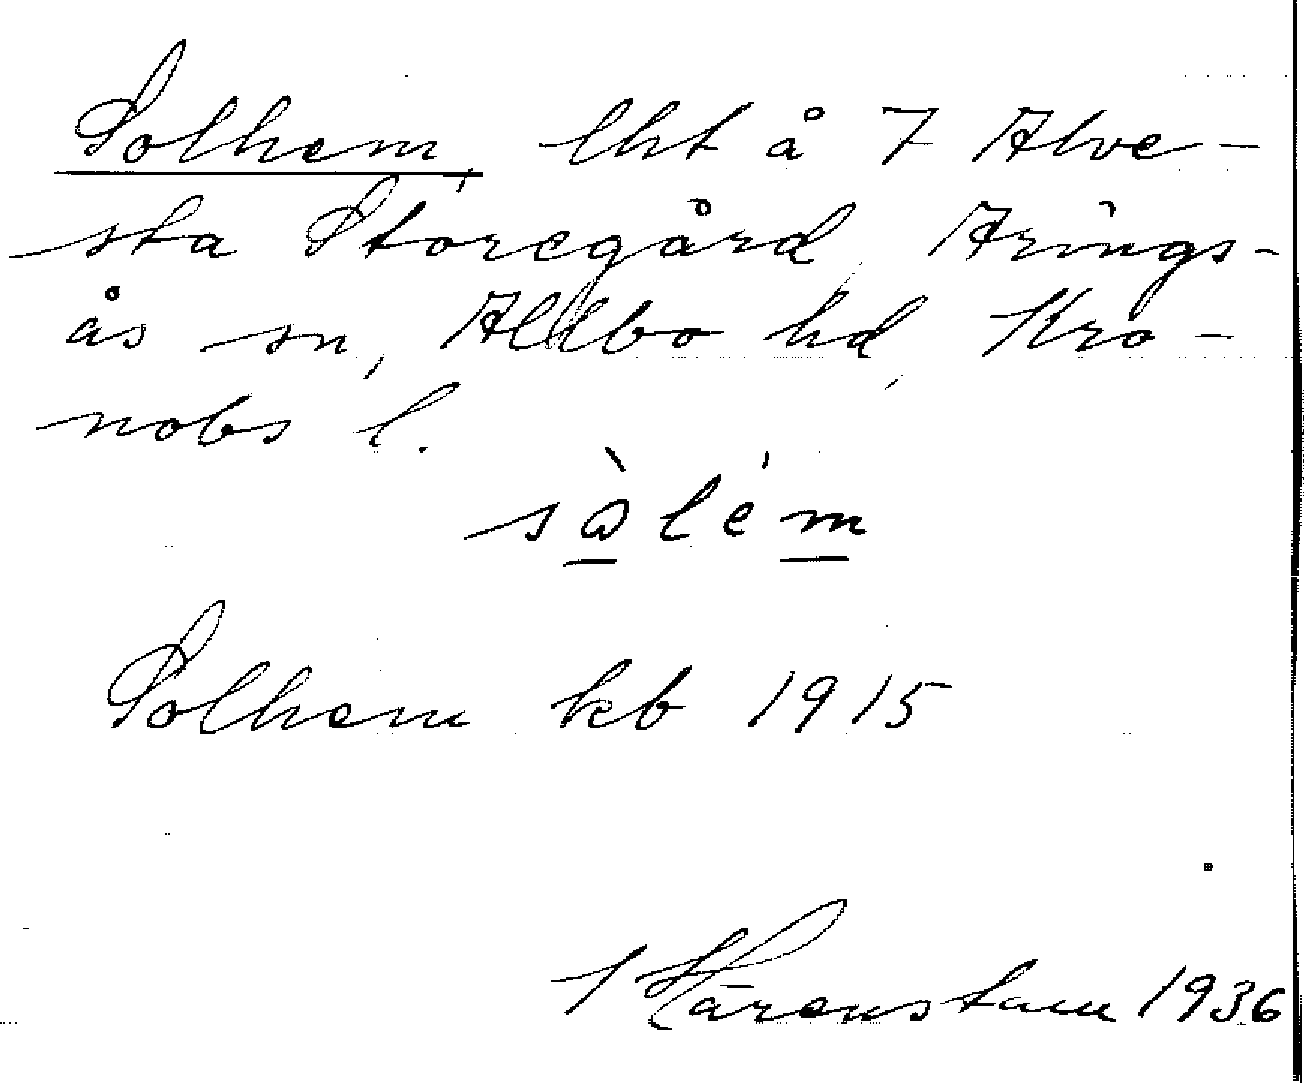 Solhem, lht å 7 Alve-
sta Storegård, Arings-
ås sn, Allbo hd, Kro-
nobs l.
sὼlém
Solhem kb 1915
1 Härenstam 1936